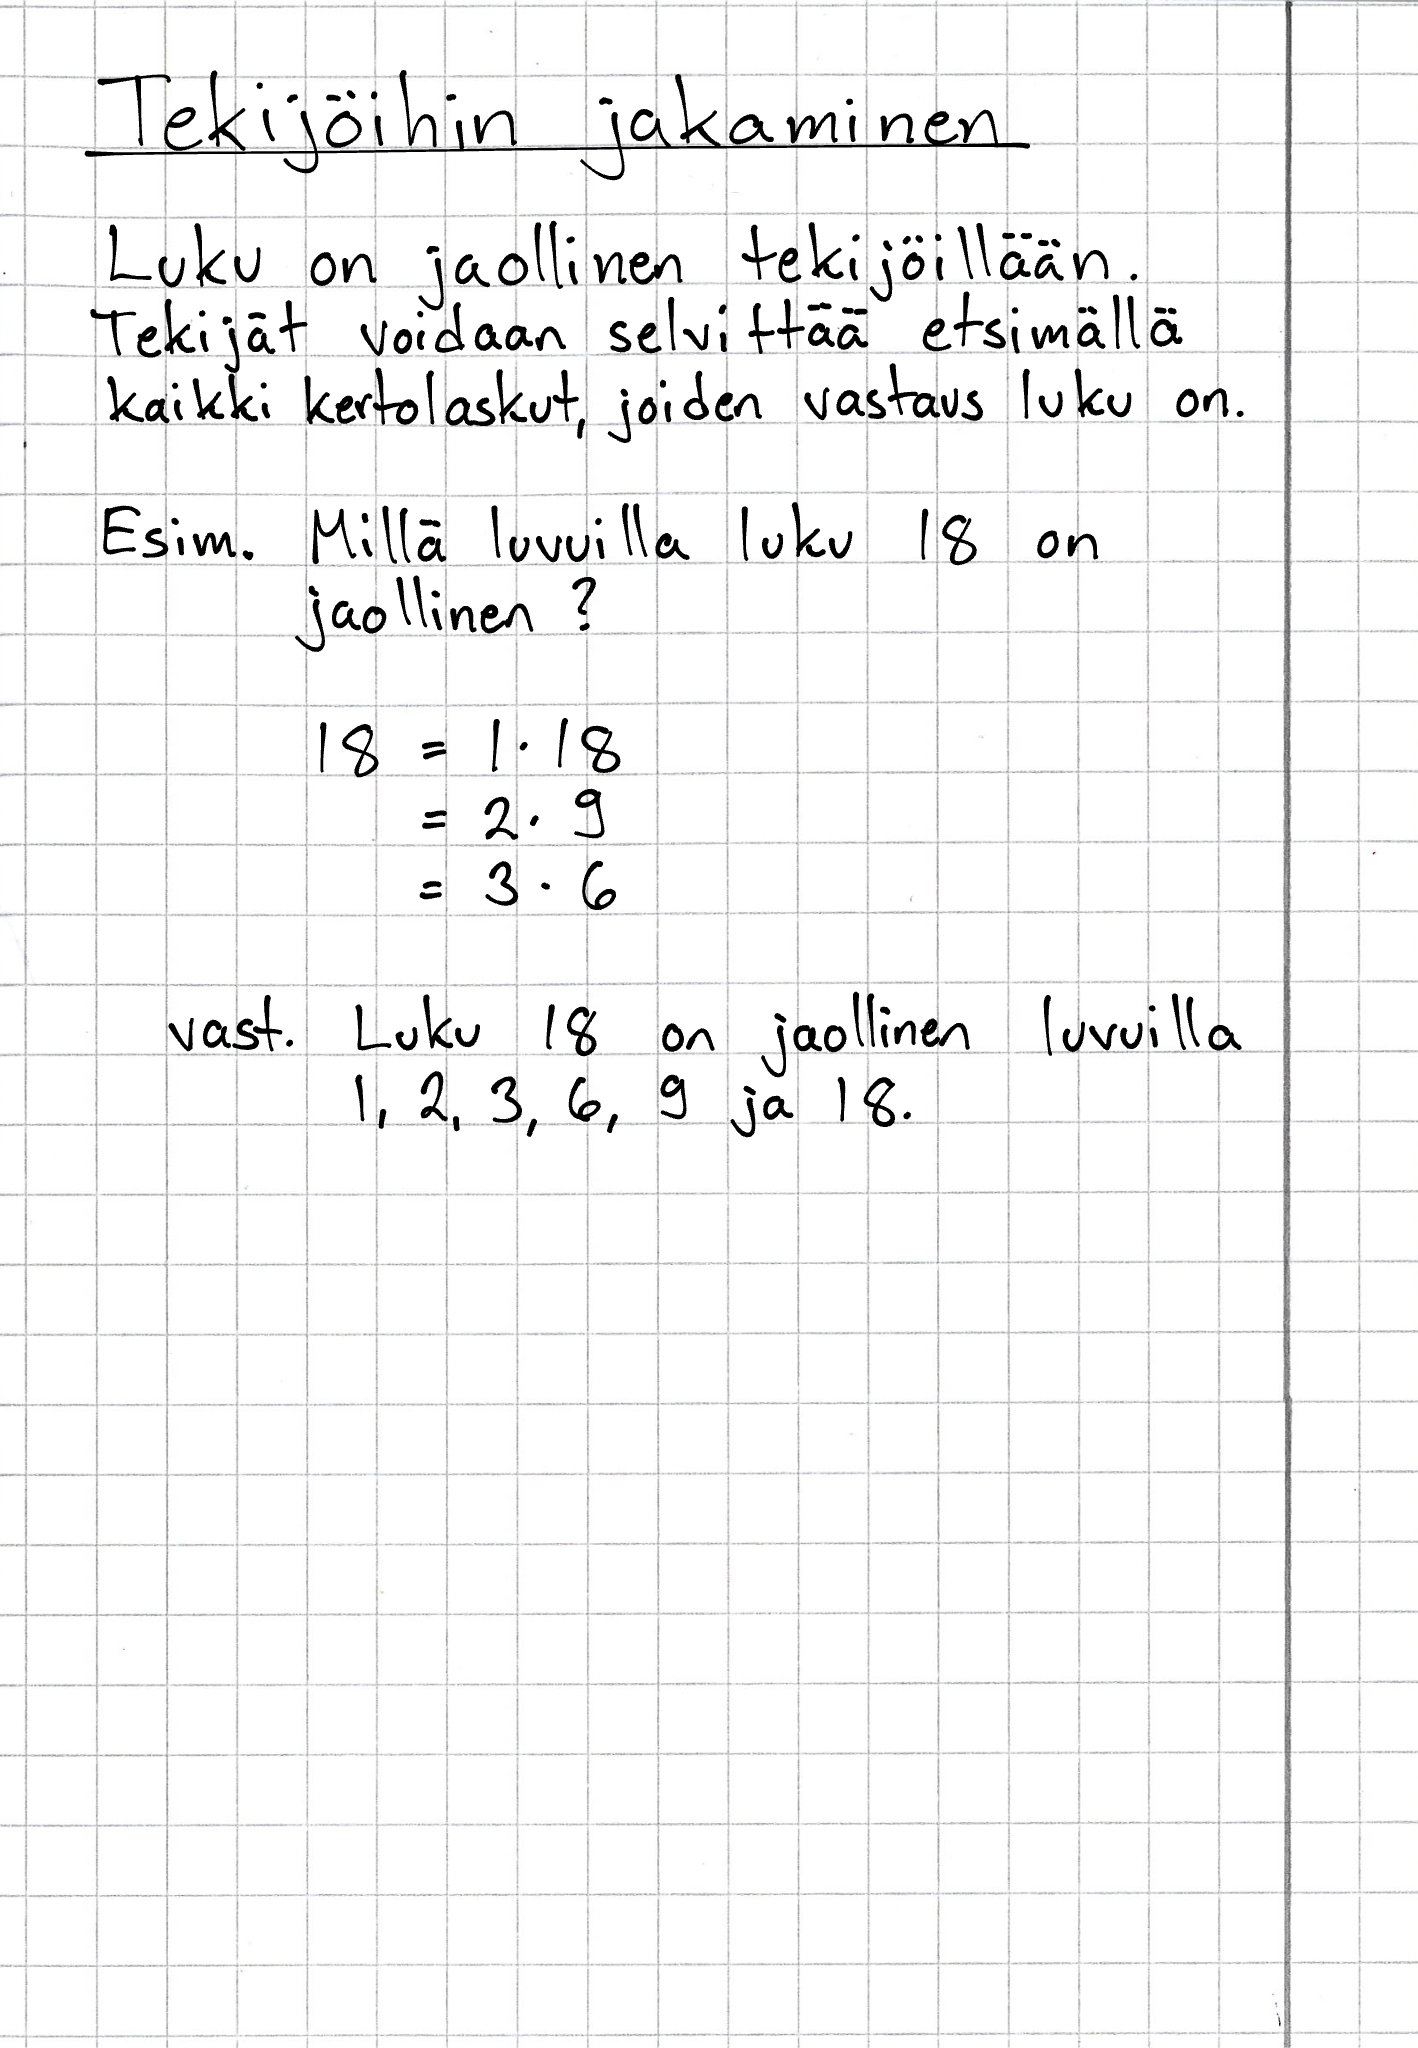 Tekijöihin jakaminen
Luku on jaollinen tekijöillään.
Tekijät voidaan selvittää etsimällä
kaikki kertolaskut, joiden vastaus luku on.
Esim. Millä luvuilla luku 18 on
jaollinen?
18 = 1 · 18
= 2 · 9
= 3 · 6
vast. Luku 18 on jaollinen luvuilla
1, 2, 3, 6, 9 ja 18.